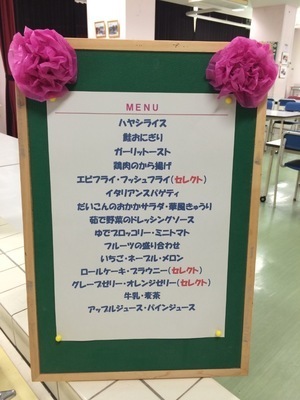 MENU
ハヤシライス
鮭おにぎり
ガーリットースト
鶏肉のから揚げ
エビフライ・フッシュフライ(セレクト)
イタリアンスパゲティ
だいこんのおかかサラダ・華風きゅうり
茹で野菜のドレッシングソース
ゆでブロッコリー・ミニトマト
フルーツの盛り合わせ
いちご・ネーブル・メロン
ロールケーキ・ブラウニー(セレクト)
グレープゼリー・オレンジゼリー(セレクト)
牛乳・麦茶
アップルジュース・パインジュース